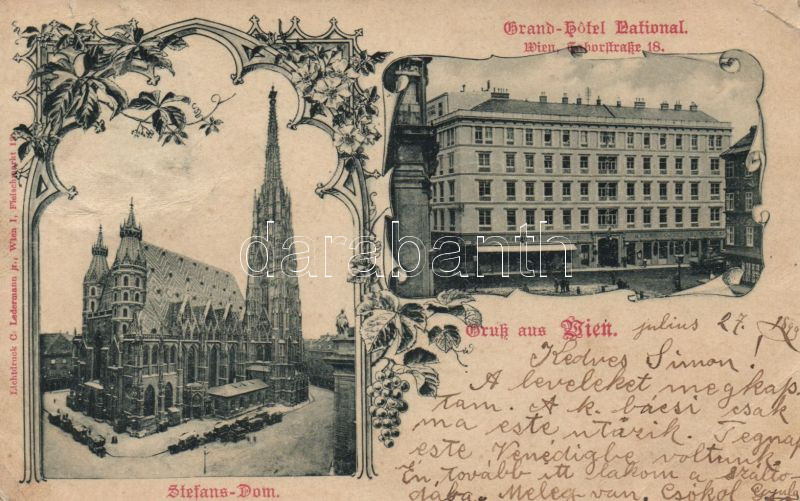 Grand-Hôtel National.
Wien, Taborstraße 18.
Lichtdruck C. Ledermann jr., Wien I, Fleischmarkt
darabanth
Gruß aus Wien.
julius 27.
Kedves Simon!
A leveleket megkap
tam. A k. bácsi csak
ma este utázik. Tegnap
este Venédigbe voltunk
Én tovább itt lakom a szállo
dába. Meleg van. Csókol
Stefans-Dom.